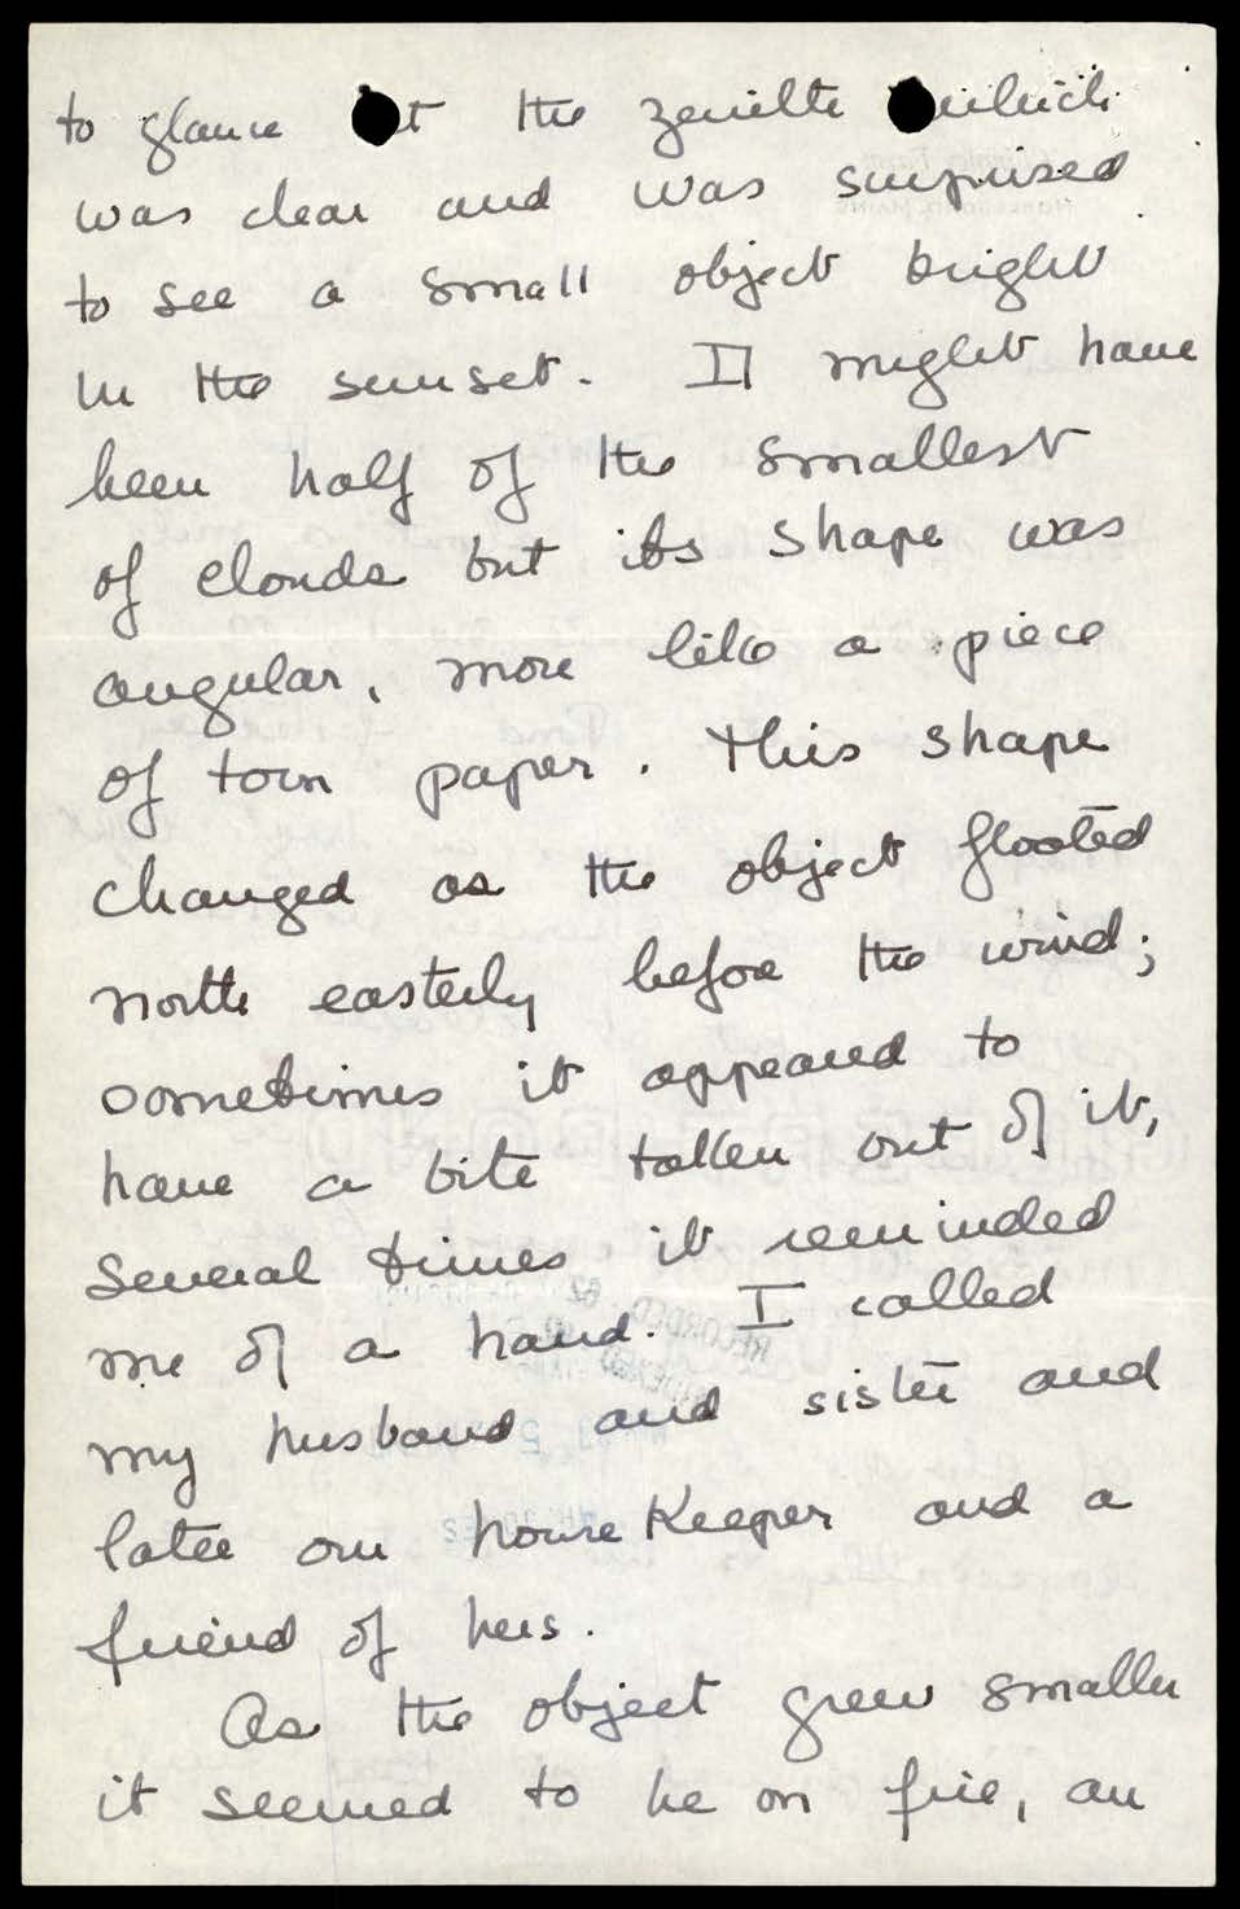 to glance at the zenith which
was clear and was surprised
to see a small object bright
in the sunset. It might have
been half of the smallest
of clouds but its shape was
angular, more like a piece
of torn paper. This shape
changed as the object floated
north easterly before the wind;
sometimes it appeared to
have a bite taken out of it,
several times it reminded
me of a hand. I called
my husband and sister and
later our housekeeper and a
friend of hers.
As the object grew smaller
it seemed to be on fire, an